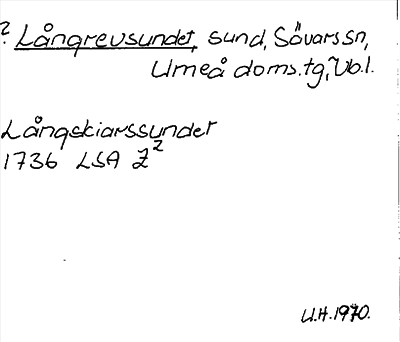 ? Långrevsundet, sund, Sävars sn,
Umeå doms.tg, Vb.l.
Långskiarssundet
1736 LSA Z²
U.H. 1970.